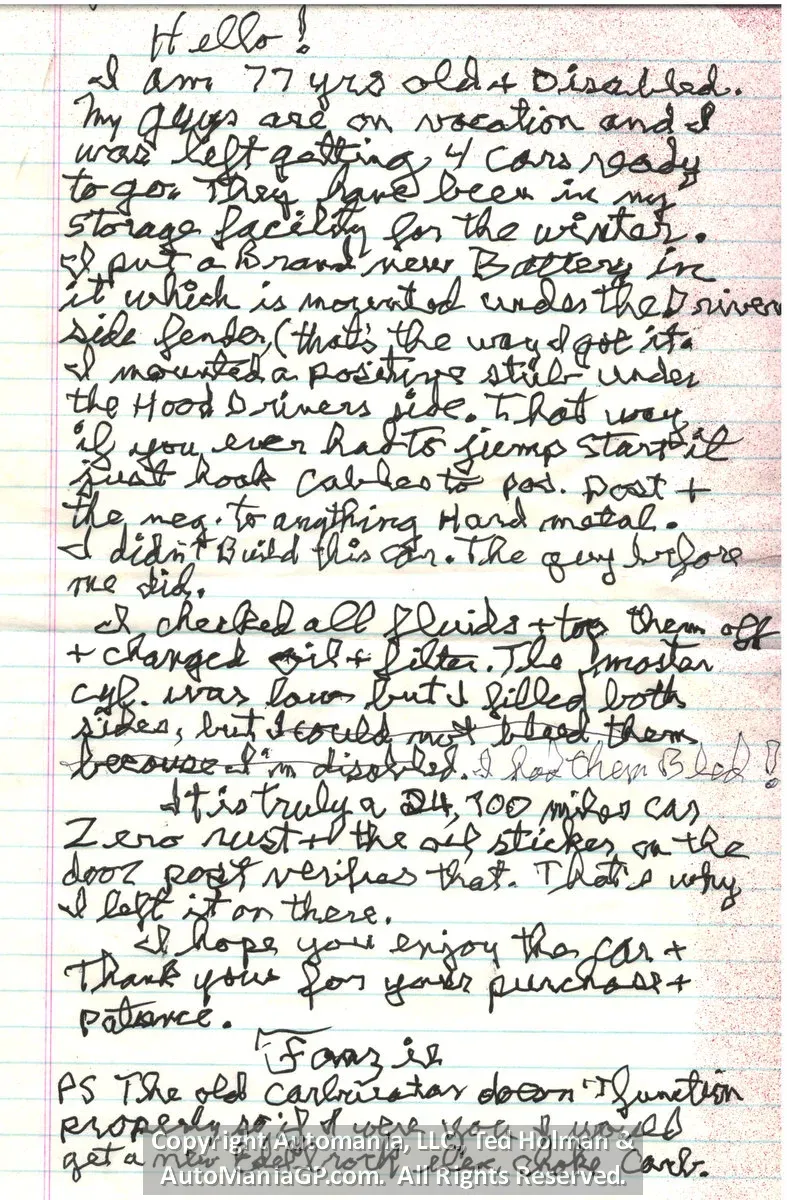 Hello!
I am 77 yrs old + Disabled.
My guys are on vacation and I
was left getting 4 cars ready
to go. They have been in my
storage facility for the winter.
I put a Brand new Battery in
it which is mounted under the Driver
side fender, (that's the way I got it.
I mounted a positive stub under
the Hood Drivers side. That way
if you ever had to jump start it
just hook Cables to pos. post +
the neg. to anything Hard metal.
I didn't Build this car. The guy before
me did.
I checked all fluids + top them off
+ changed oil + filter. The master
cyl. was low but I filled both
sides, but I could not bleed them
because I'm disabled. I had them Bled!
It is truly a 24,700 miles car
Zero rust + the oil sticker on the
door post verifies that. That's why
I left it on there.
I hope you enjoy the car +
Thank you for your purchase +
patance.
PS The old carburator doesn't function
properly so if I were you I would
get a new Edelbrock elec choke Carb.
Copyright Automania, LLC, Ted Holman &
AutoManiaGP.com. All Rights Reserved.